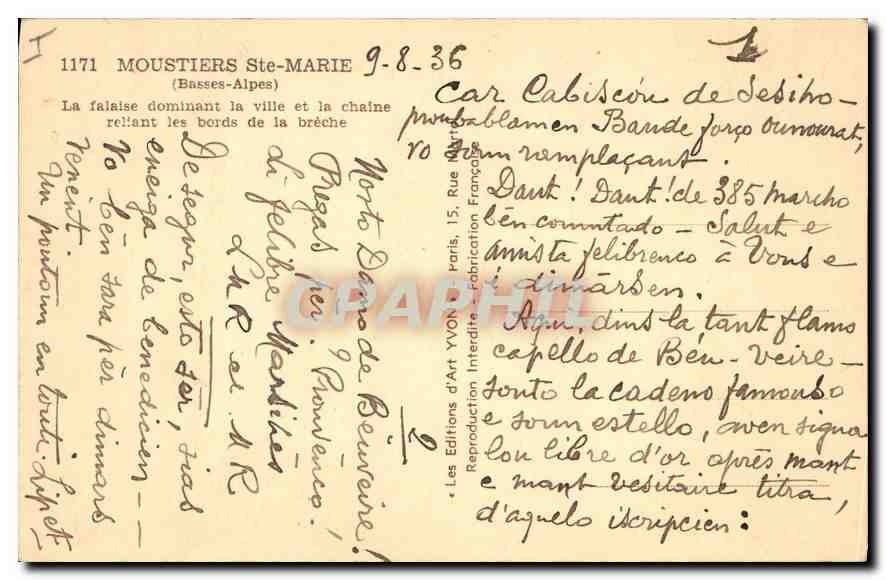 1171 MOUSTIERS Ste-MARIE
(Basses-Alpes)
La falaise dominant la ville et la chaîne
reliant les bords de la brèche
9-8-36
1
Car Cabiscòu de Sesiho-
proubablamen Baude forço ounourat,
vo soun remplaçant.
Daut! Daut! de 385 marcho
bèn coumtado - Salut e
amista felibrenco à Vous e
i dimarsen.
Aqui, dins la tant flamo
capello de Bèu-Veire-
souto la cadeno famouso
e soun estello, aven signa
lou libre d'or après mant
e mant vesitaire titra,
d'aquelo iscripcien:
2
Nosto Damo de Bèuveire!
Pregas pèr. 9 Prouvènço!
li felibre Marsihés
LMR et MR
De segur, esto ser, sias
eneiga de benedicien --
Vo bèn sara pèr dimars
venènt.
Un poutoun en touti. Lipet
« Les Editions d'Art YVON » Paris, 15, Rue Martel
Reproduction Interdite - Fabrication Française
CPAPHIL